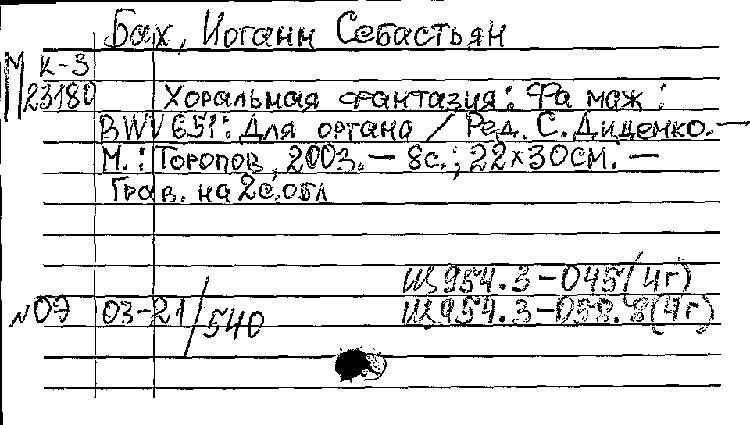 Бах, Иоганн Себастьян
М к-3
23180
Хоральная фантазия: Фа маж:
BWV 651: Для органа / Ред. С. Диденко. —
М.: Торопов, 2003. — 8с.; 22×30см. —
Грав. на 2с. обл
Щ954.3-045(4г)
№07 03-21/540 Щ954.3-058.8(4г)